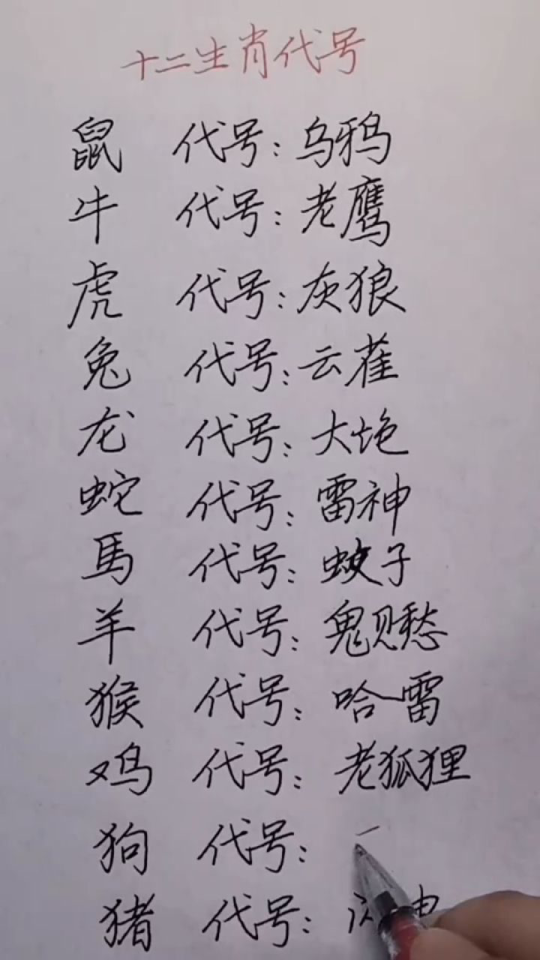 十二生肖代号
鼠 代号:乌鸦
牛 代号:老鹰
虎 代号:灰狼
兔 代号:云雀
龙 代号:大炮
蛇 代号:雷神
馬 代号:蚊子
羊 代号:鬼见愁
猴 代号:哈雷
鸡 代号:老狐狸
狗 代号:
猪 代号: